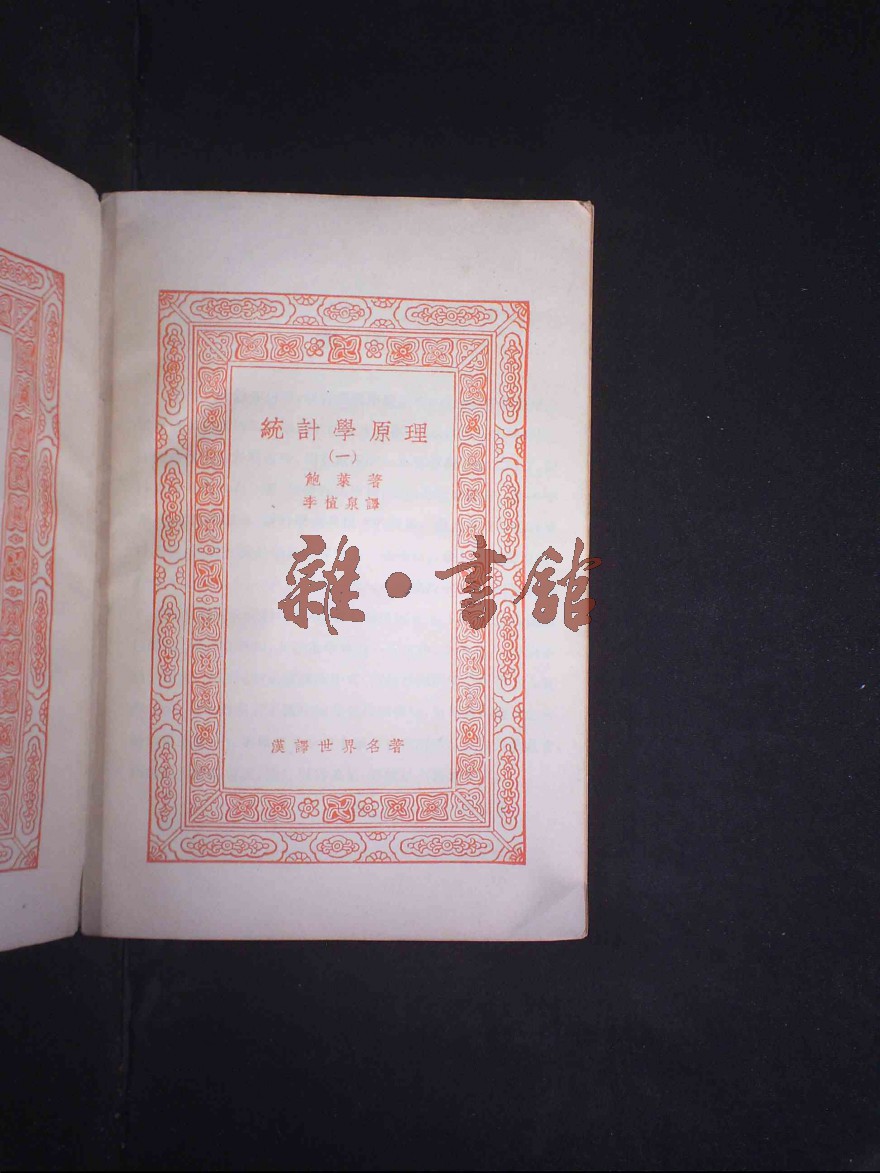 統計學原理
(一)
鮑葉著
李植泉譯
雜·書館
漢譯世界名著